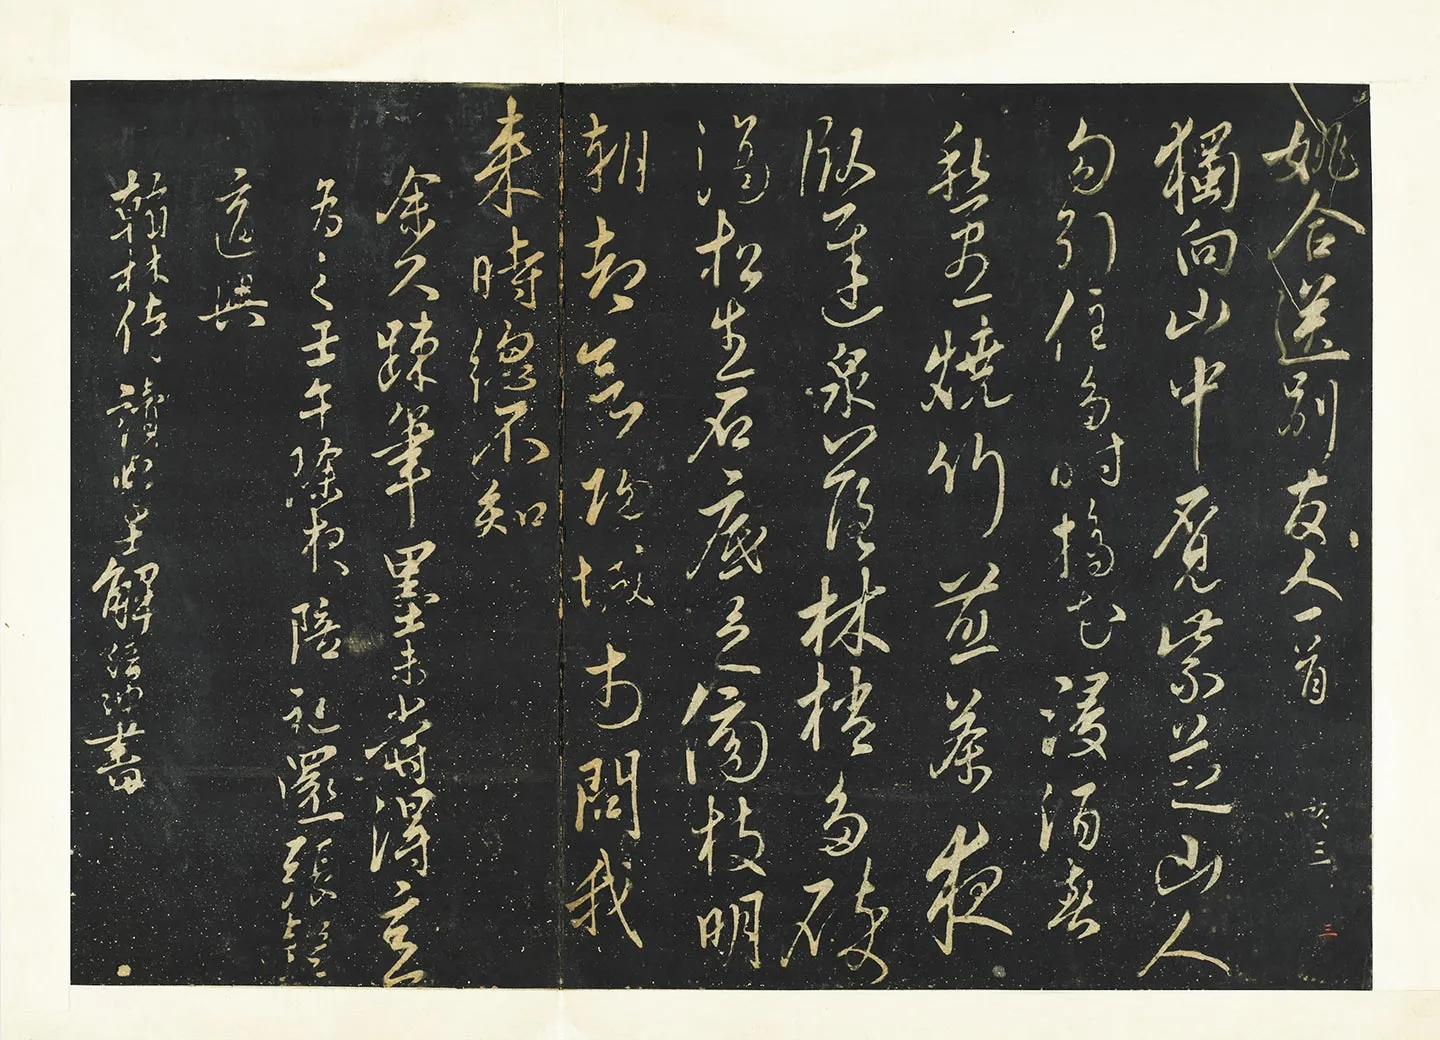 姚合送别友人一首
三
獨向山中覓紫芝山人
勾引住多時摘花浸酒春
愁盡燒竹煎茶夜
臥遲泉落林梢多碎
滴松生石底足傍枝明
朝却城市問我
來時總不知
余久疎筆墨未嘗得意
為之壬午除夜陪祀還張燈
適興
翰林侍讀學士解縉紳書